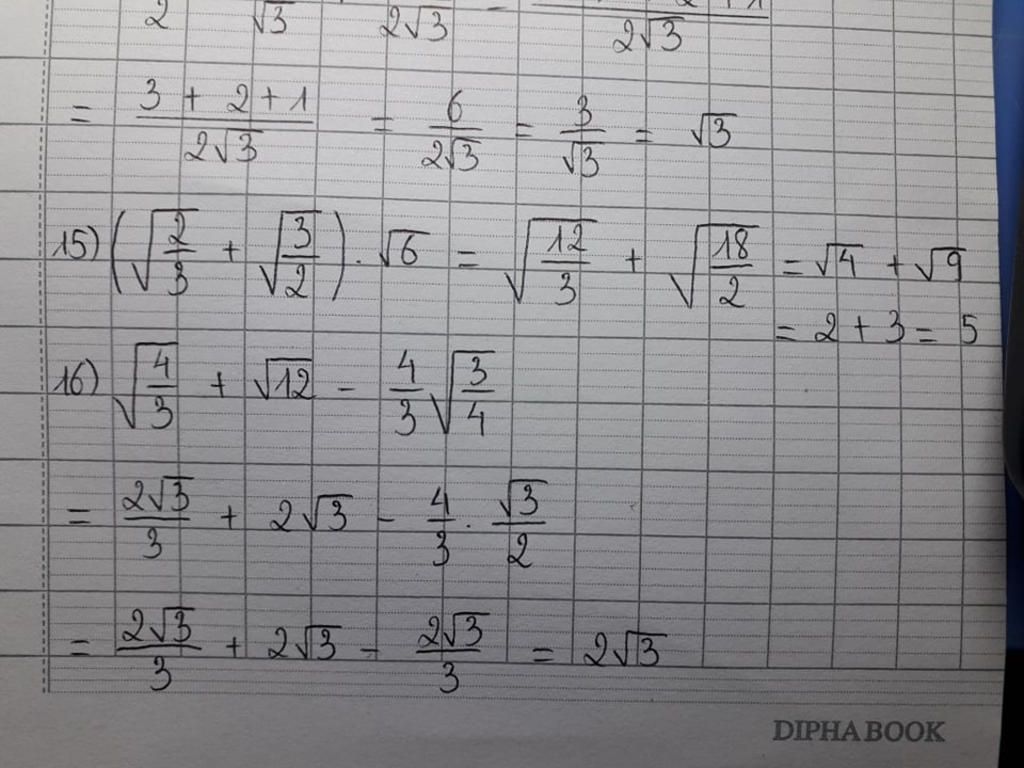 2 √3 2√3 = 2 + 1 / 2√3
= (3 + 2 + 1)/(2√3) = 6/(2√3) = 3/√3 = √3
15) (√(2/3) + √(3/2)) . √6 = √(12/3) + √(18/2) = √4 + √9
= 2 + 3 = 5
16) √(4/3) + √12 - 4/3 √(3/4)
= 2√3/3 + 2√3 - 4/3 . √3/2
= 2√3/3 + 2√3 - 2√3/3 = 2√3
DIPHA BOOK